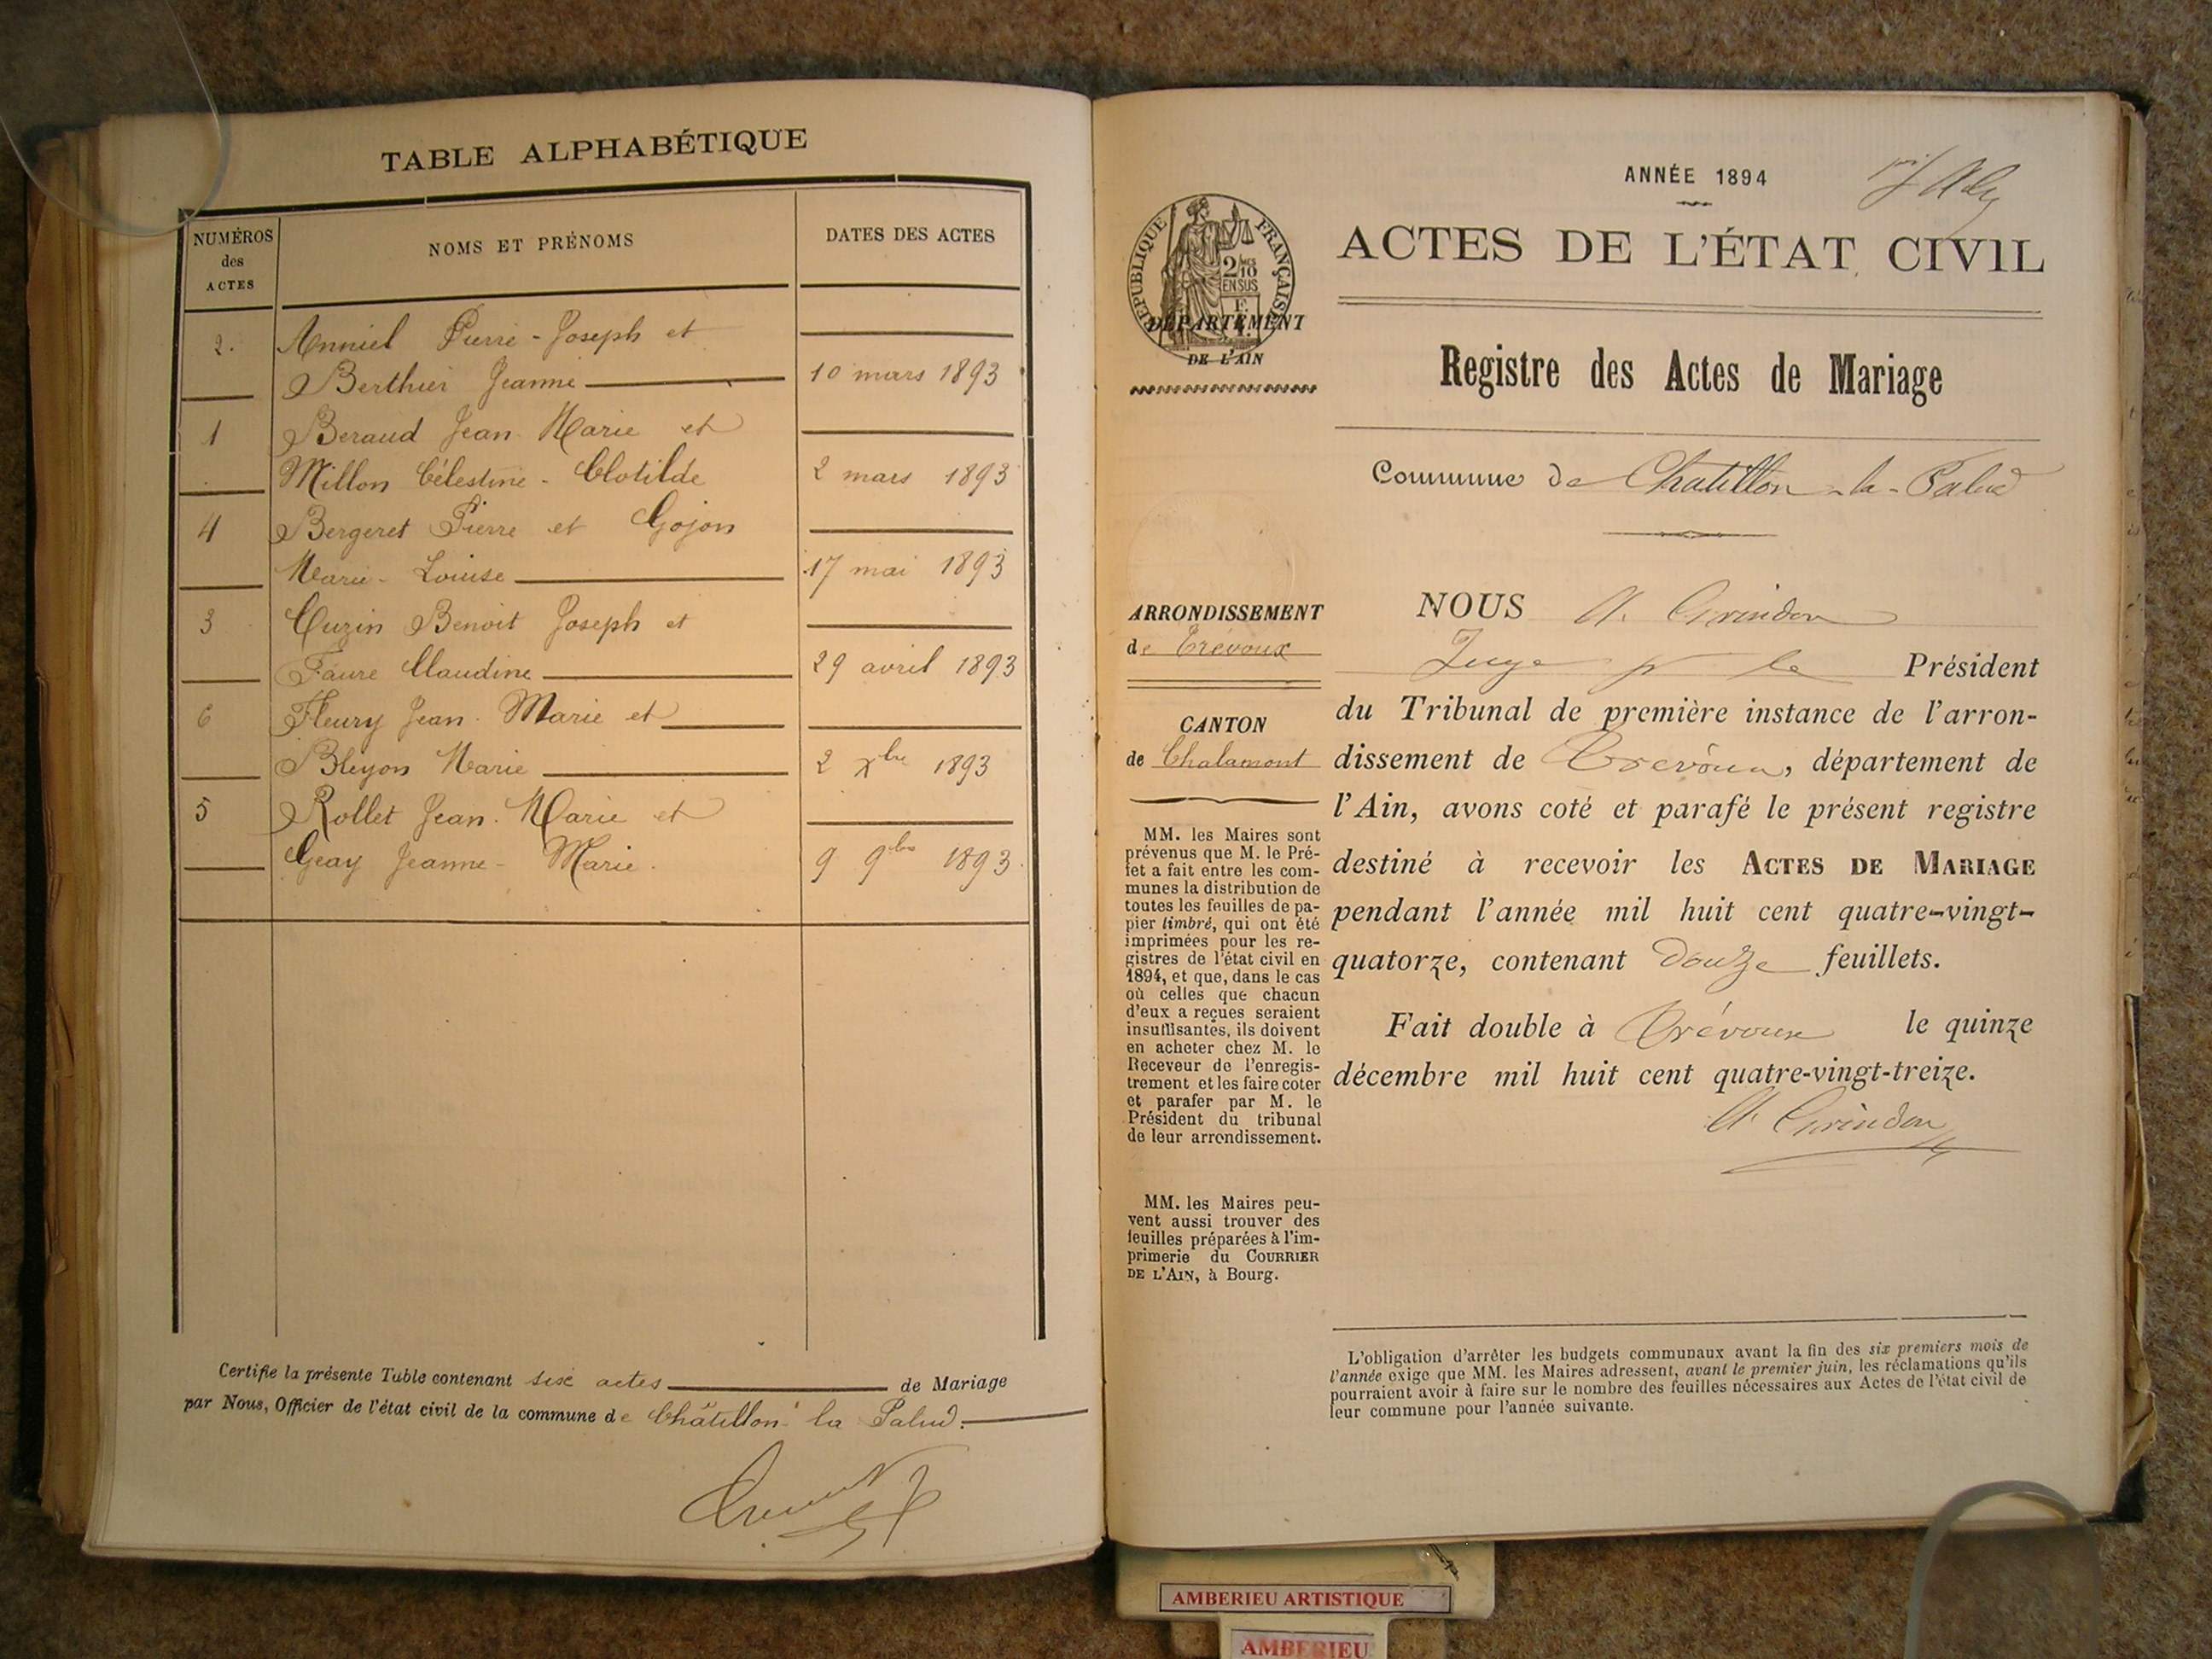 TABLE ALPHABÉTIQUE
NUMÉROS des ACTES
NOMS ET PRÉNOMS
DATES DES ACTES
2. Anniel Pierre-Joseph et
Berthier Jeanne 10 mars 1893
1 Beraud Jean Marie et
Millon Célestine-Clotilde 2 mars 1893
4 Bergeret Pierre et Gojon
Marie-Louise 17 mai 1893
3 Cuzin Benoit Joseph et
Faure Claudine 29 avril 1893
6 Fleury Jean-Marie et
Bleyon Marie 2 Xbre 1893
5 Rollet Jean-Marie et
Geay Jeanne-Marie. 9 9bre 1893.
Certifie la présente Table contenant six actes de Mariage
par Nous, Officier de l'état civil de la commune de Châtillon la Palud.
ANNÉE 1894
RÉPUBLIQUE FRANÇAISE
2/10 EN SUS
DÉPARTEMENT
DE L'AIN
ACTES DE L'ÉTAT CIVIL
Registre des Actes de Mariage
Commune de Chatillon-la-Palud
ARRONDISSEMENT
de Trévoux
CANTON
de Chalamont
MM. les Maires sont
prévenus que M. le Pré-
fet a fait entre les com-
munes la distribution de
toutes les feuilles de pa-
pier timbré, qui ont été
imprimées pour les re-
gistres de l'état civil en
1894, et que, dans le cas
où celles que chacun
d'eux a reçues seraient
insuffisantes, ils doivent
en acheter chez M. le
Receveur de l'enregis-
trement et les faire coter
et parafer par M. le
Président du tribunal
de leur arrondissement.
MM. les Maires peu-
vent aussi trouver des
feuilles préparées à l'im-
primerie du COURRIER
DE L'AIN, à Bourg.
NOUS A. Grindon
Juge pr le Président
du Tribunal de première instance de l'arron-
dissement de Trévoux, département de
l'Ain, avons coté et parafé le présent registre
destiné à recevoir les ACTES DE MARIAGE
pendant l'année mil huit cent quatre-vingt-
quatorze, contenant douze feuillets.
Fait double à Trévoux le quinze
décembre mil huit cent quatre-vingt-treize.
A. Grindon
L'obligation d'arrêter les budgets communaux avant la fin des six premiers mois de
l'année exige que MM. les Maires adressent, avant le premier juin, les réclamations qu'ils
pourraient avoir à faire sur le nombre des feuilles nécessaires aux Actes de l'état civil de
leur commune pour l'année suivante.
AMBERIEU ARTISTIQUE
AMBERIEU